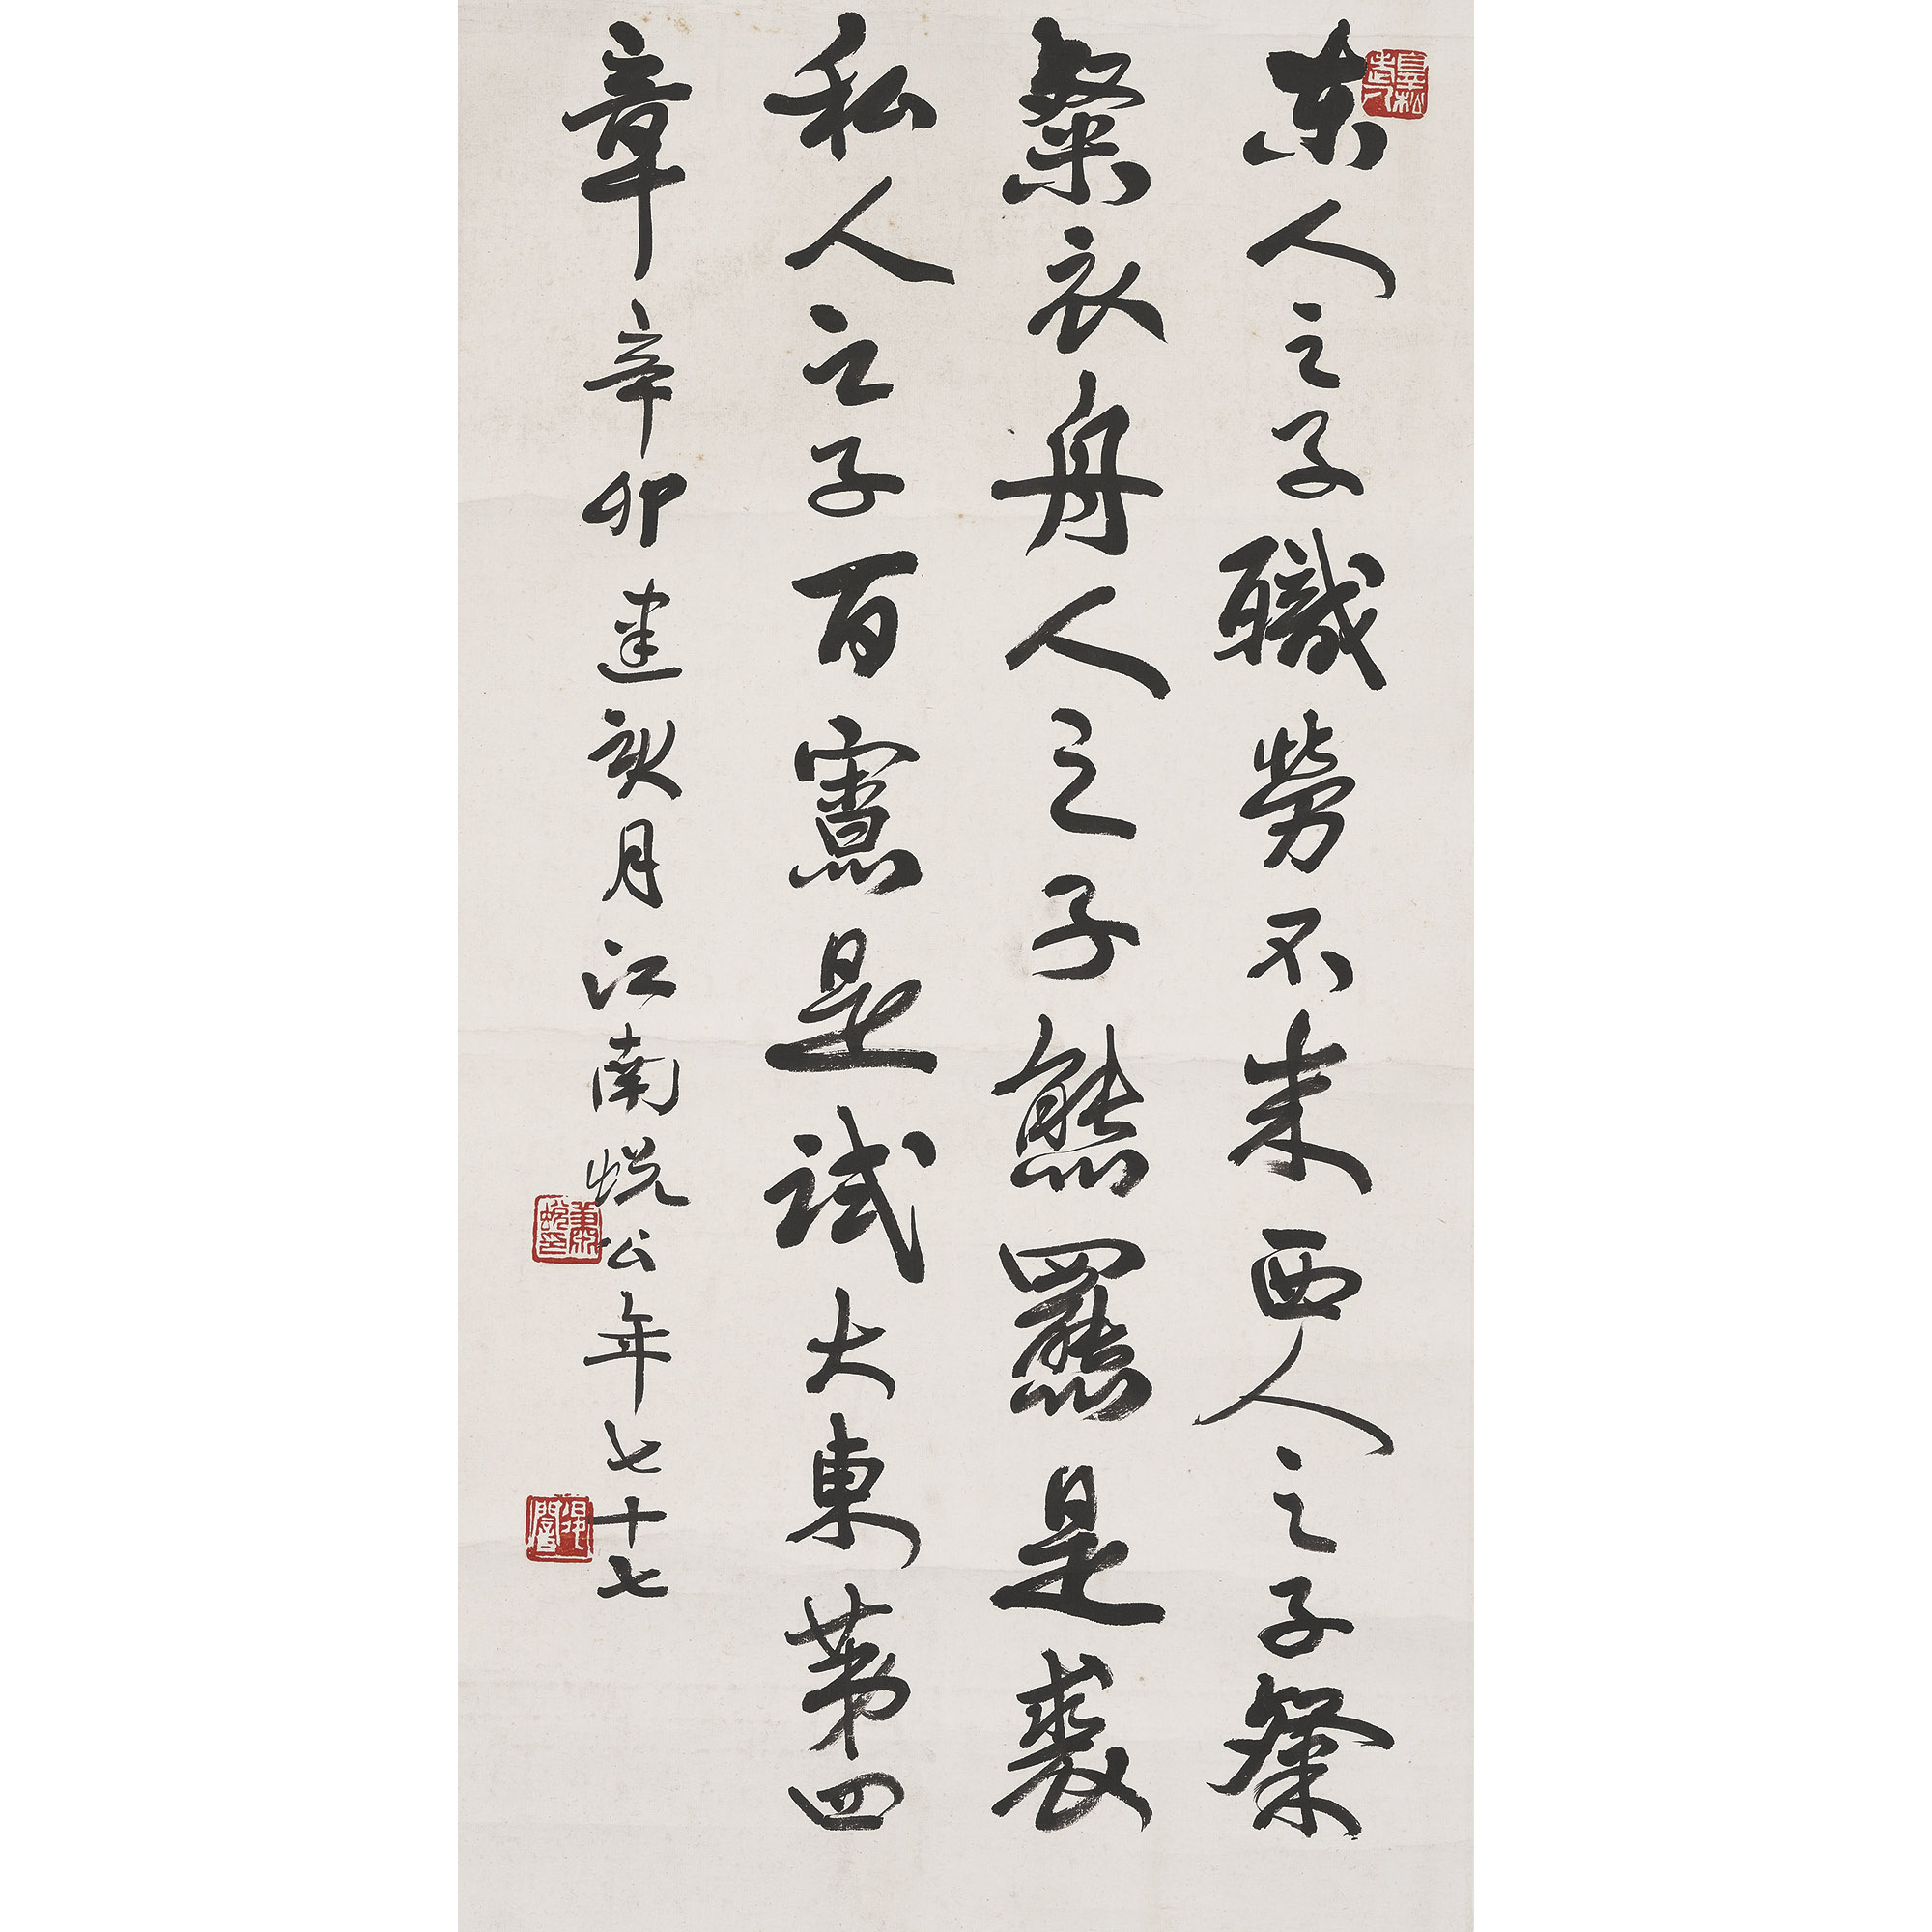 東人之子職勞不来西人之子粲
粲衣舟人之子熊羆是裘
私人之子百寮是試大東苐四
章辛卯建亥月江南蛻公年七十七